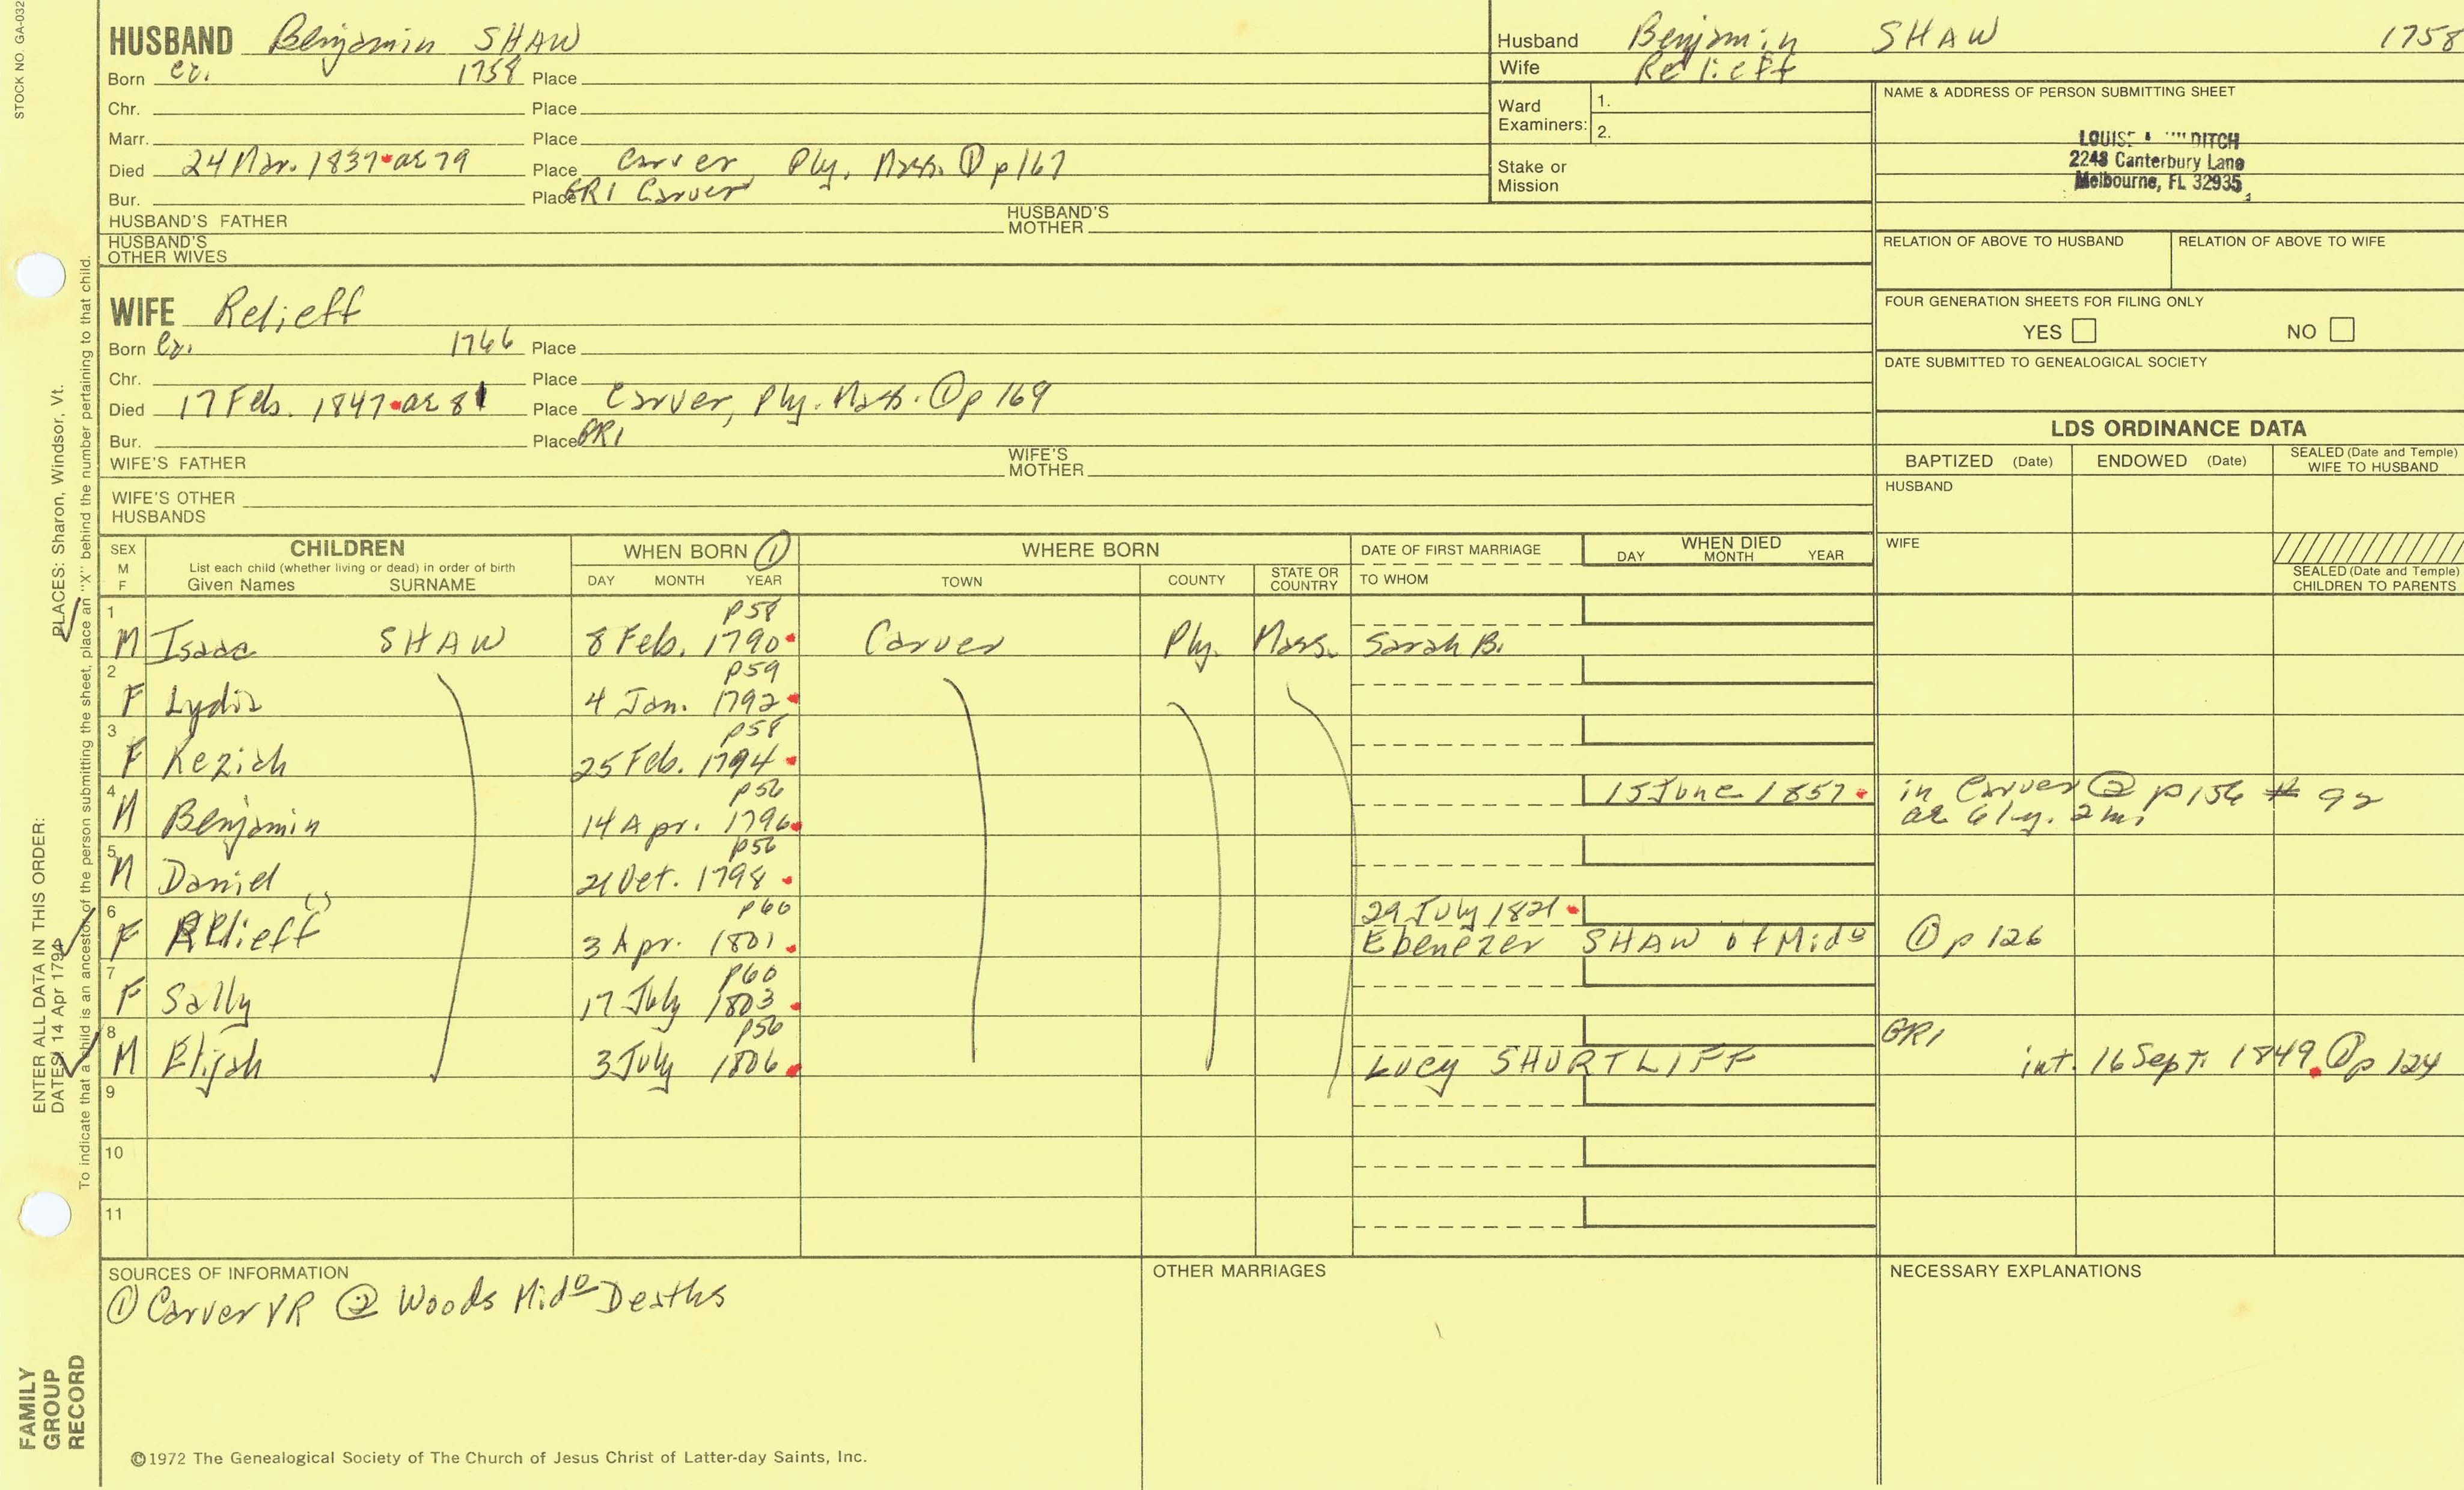 STOCK NO. GA-032
HUSBAND Benjamin SHAW
Born ca. 1758 Place
Chr. Place
Marr. Place
Died 24 Mar. 1837 ae 79 Place Carver, Ply. Mass. ① p 167
Bur. Place GR1 Carver
HUSBAND'S FATHER HUSBAND'S MOTHER
HUSBAND'S OTHER WIVES
Husband Benjamin SHAW 1758
Wife Relieff
Ward Examiners: 1. 2.
Stake or Mission
NAME & ADDRESS OF PERSON SUBMITTING SHEET
LOUISE DITCH
2248 Canterbury Lane
Melbourne, FL 32935
RELATION OF ABOVE TO HUSBAND RELATION OF ABOVE TO WIFE
FOUR GENERATION SHEETS FOR FILING ONLY
YES NO
DATE SUBMITTED TO GENEALOGICAL SOCIETY
WIFE Relieff
Born ca. 1766 Place
Chr. Place
Died 17 Feb. 1847 ae 81 Place Carver, Ply. Mass. ① p 169
Bur. Place GR1
WIFE'S FATHER WIFE'S MOTHER
WIFE'S OTHER HUSBANDS
LDS ORDINANCE DATA
BAPTIZED (Date) ENDOWED (Date) SEALED (Date and Temple) WIFE TO HUSBAND
HUSBAND
WIFE
SEALED (Date and Temple) CHILDREN TO PARENTS
SEX M F
CHILDREN
List each child (whether living or dead) in order of birth
Given Names SURNAME
WHEN BORN ①
DAY MONTH YEAR
WHERE BORN
TOWN COUNTY STATE OR COUNTRY
DATE OF FIRST MARRIAGE
TO WHOM
WHEN DIED
DAY MONTH YEAR
1 p58
M Isaac SHAW 8 Feb. 1790 Carver Ply. Mass. Sarah B.
2 p59
F Lydia 4 Jan. 1792
3 p58
F Keziah 25 Feb. 1794
4 p56 15 June 1857 in Carver ② p156 # 92
M Benjamin 14 Apr. 1796 ae 61y. 2m.
5 p56
M Daniel 21 Oct. 1798
6 p60 29 July 1821
F Relieff 3 Apr. 1801 Ebenezer SHAW of Mido ① p 126
7 p60
F Sally 17 July 1803
8 p56 GR1
M Elijah 3 July 1806 Lucy SHURTLIFF int. 16 Sept. 1849 ① p 124
9
10
11
SOURCES OF INFORMATION
① Carver VR ② Woods Mido Deaths
OTHER MARRIAGES
NECESSARY EXPLANATIONS
©1972 The Genealogical Society of The Church of Jesus Christ of Latter-day Saints, Inc.
FAMILY GROUP RECORD
ENTER ALL DATA IN THIS ORDER:
DATES: 14 Apr 1794
PLACES: Sharon, Windsor, Vt.
To indicate that a child is an ancestor of the person submitting the sheet, place an "X" behind the number pertaining to that child.